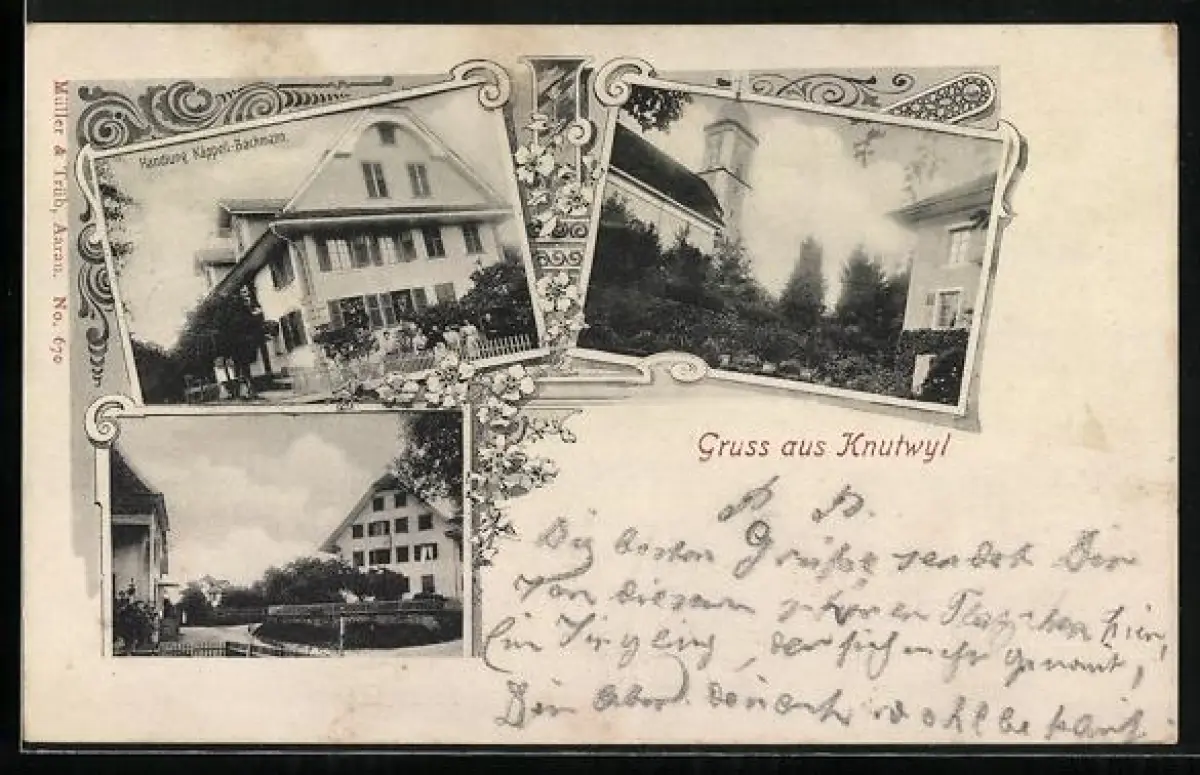 Müller & Trüb, Aarau. No. 670
Handlung Käppeli-Bachmann.
Gruss aus Knutwyl
P. P.
Die besten Grüße sendet Dir
Von diesem schönen Plätzchen hier,
Ein Jüngling, der sich nicht genannt,
Dir aber dennoch wohlbekannt